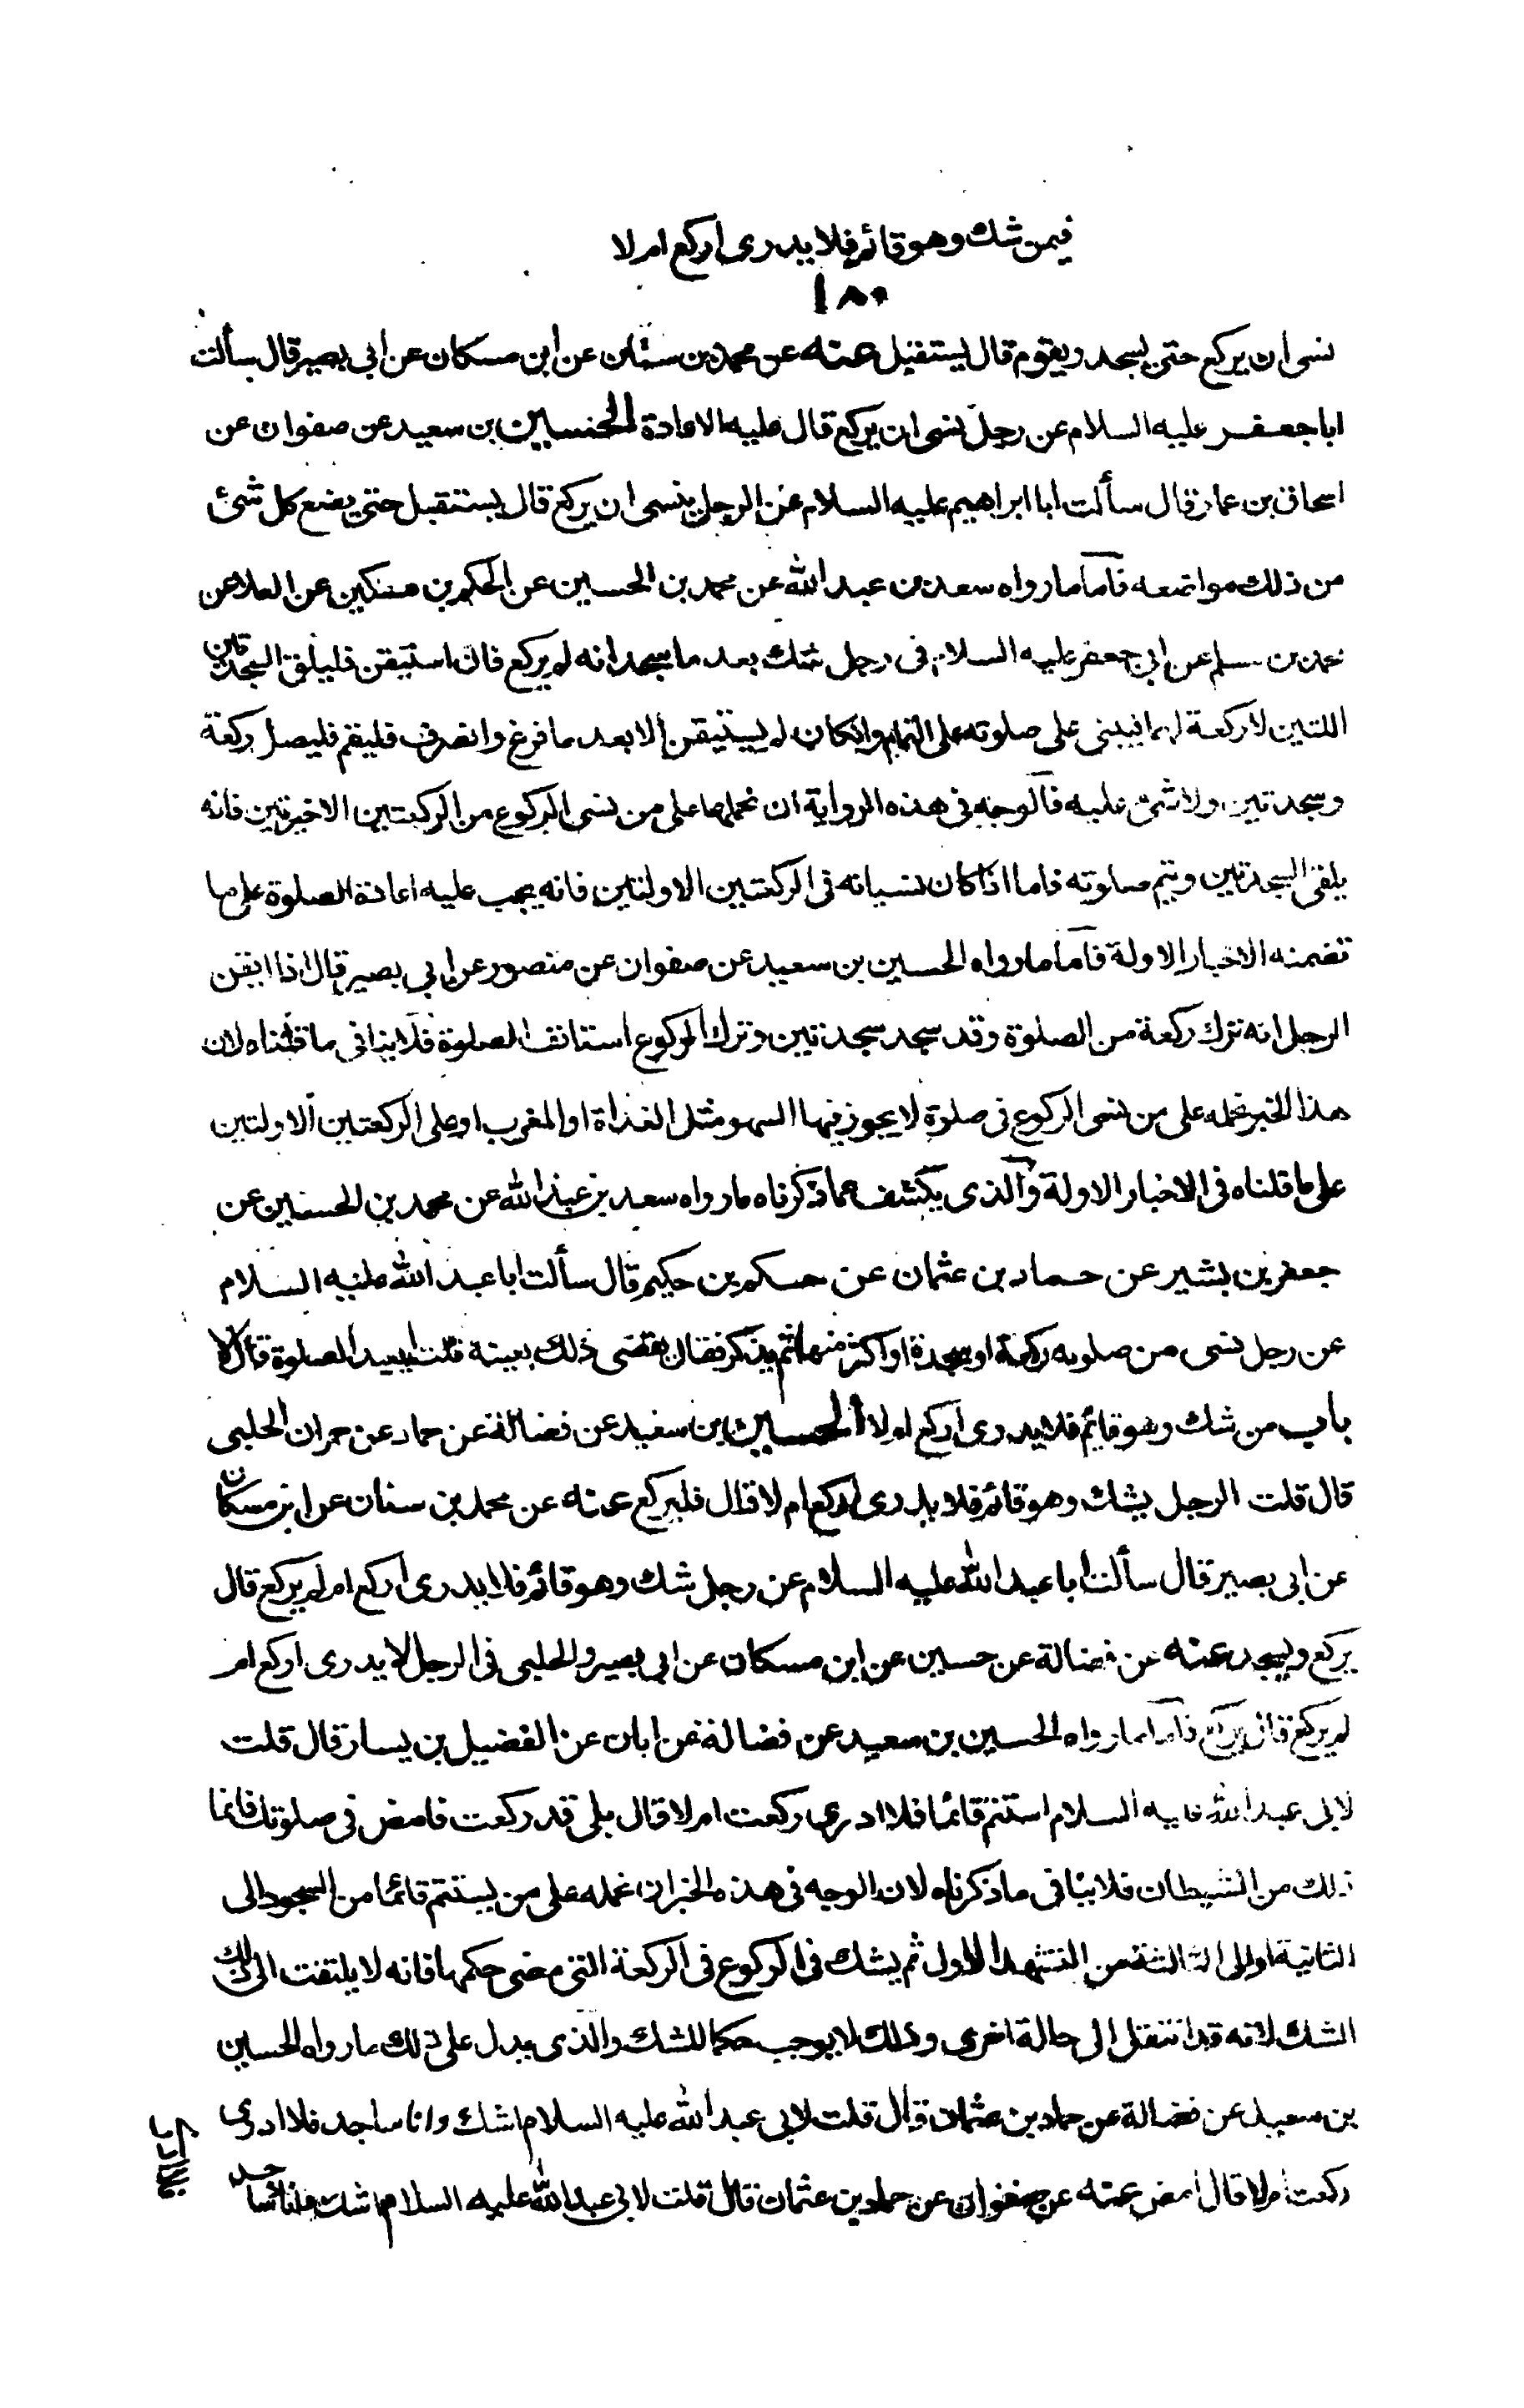 فيمن شك وهو قائم فلا يدرى اركع ام لا
١٨٠
نسى ان يركع حتى يسجد ويقوم قال يستقبل عنه عن محمد بن سنان عن ابن مسكان عن ابى بصير قال سألت
ابا جعفر عليه السلام عن رجل نسى ان يركع قال عليه الاعادة الحسين بن سعيد عن صفوان عن
اسحاق بن عمار قال سألت ابا ابراهيم عليه السلام عن الرجل ينسى ان يركع قال يستقبل حتى يضع كل شئ
من ذلك مواضعه فاما ما رواه سعد بن عبد الله عن محمد بن الحسين عن الحكم بن مسكين عن العلا عن
محمد بن مسلم عن ابى جعفر عليه السلام فى رجل شك بعد ما سجد انه لم يركع فان استيقن فليلق السجدتين
اللتين لا ركعة لهما فيبنى على صلوته على التمام وان كان لم يستيقن الا بعد ما فرغ وانصرف فليقم فليصل ركعة
وسجدتين ولا شئ عليه فالوجه فى هذه الرواية ان نحملها على من نسى الركوع من الركعتين الاخيرتين فانه
يلقى السجدتين ويتم صلوته فاما اذا كان نسيانه فى الركعتين الاولتين فانه يجب عليه اعادة الصلوة على ما
تضمنه الاخبار الاولة فاما ما رواه الحسين بن سعيد عن صفوان عن منصور عن ابى بصير قال اذا ايقن
الرجل انه ترك ركعة من الصلوة وقد سجد سجدتين وترك الركوع استانف الصلوة فلا ينافى ما قلناه لان
هذا الخبر نحمله على من نسى الركوع فى صلوة لا يجوز فيها السهو مثل الغداة او المغرب او على الركعتين الاولتين
على ما قلناه فى الاخبار الاولة والذى يكشف عما ذكرناه ما رواه سعد بن عبد الله عن محمد بن الحسين عن
جعفر بن بشير عن حماد بن عثمان عن حكم بن حكيم قال سألت ابا عبد الله عليه السلام
عن رجل نسى من صلوته ركعة او سجدة او اكثر منها ثم يذكر فقال يقضى ذلك بعينه قلت ايعيد الصلوة قال لا
باب من شك وهو قايم فلا يدرى اركع ام لا الحسين بن سعيد عن فضالة عن حماد عن حمران الحلبى
قال قلت الرجل يشك وهو قائم فلا يدرى اركع ام لا قال فليركع عنه عن محمد بن سنان عن ابن مسكان
عن ابى بصير قال سألت ابا عبد الله عليه السلام عن رجل شك وهو قائم فلا يدرى اركع ام لم يركع قال
يركع ويسجد عنه عن فضالة عن حسين عن ابن مسكان عن ابى بصير والحلبى فى الرجل لا يدرى اركع ام
لم يركع قال يركع فاما ما رواه الحسين بن سعيد عن فضالة عن ابان عن الفضيل بن يسار قال قلت
لابى عبد الله عليه السلام استتم قائما فلا ادرى ركعت ام لا قال بلى قد ركعت فامض فى صلوتك فانما
ذلك من الشيطان فلا ينافى ما ذكرناه لان الوجه فى هذه الخبر ان نحمله على من يستتم قائما من السجود الى
الثانية او الى الثالثة من التشهد الاول ثم يشك فى الركوع فى الركعة التى مضى حكمها فانه لا يلتفت الى ذلك
الشك لانه قد انتقل الى حالة اخرى وذلك لا يوجب حكما للشك والذى يدل على ذلك ما رواه الحسين
بن سعيد عن فضالة عن حماد بن عثمان قال قلت لابى عبد الله عليه السلام اشك وانا ساجد فلا ادرى
ركعت ام لا قال امض عنه عن صفوان عن حماد بن عثمان قال قلت لابى عبد الله عليه السلام اشك وانا ساجد